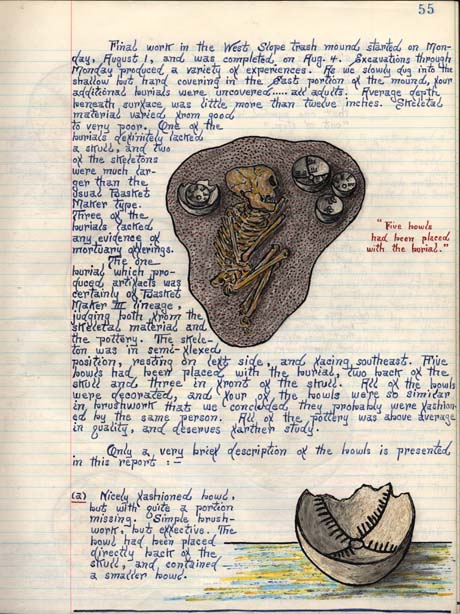 55
Final work in the West Slope trash mound started on Mon-
day, August 1, and was completed on Aug. 4. Excavations through
Monday produced a variety of experiences. As we slowly dug into the
shallow but hard covering in the East portion of the mound, four
additional burials were uncovered..... all adults. Average depth
beneath surface was little more than twelve inches. Skeletal
material varied from good
to very poor. One of the
burials definitely lacked
a skull, and two
of the skeletons
were much lar-
ger than the
usual Basket
Maker type.
Three of the
burials lacked
any evidence of
mortuary offerings.
The one
burial which pro-
duced artifacts was
certainly of Basket
Maker III lineage,
judging both from the
skeletal material and
the pottery. The skele-
ton was in semi-flexed
position, resting on left side, and facing southeast. Five
bowls had been placed with the burial, two back of the
skull and three in front of the skull. All of the bowls
were decorated, and four of the bowls were so similar
in brushwork that we concluded, they probably were fashion-
ed by the same person. All of the pottery was above average
in quality, and deserves farther study.
"Five bowls
had been placed
with the burial."
Only a very brief description of the bowls is presented
in this report : -
(a) Nicely fashioned bowl,
but with quite a portion
missing. Simple brush-
work, but effective. The
bowl had been placed
directly back of the
skull, and contained
a smaller bowl.